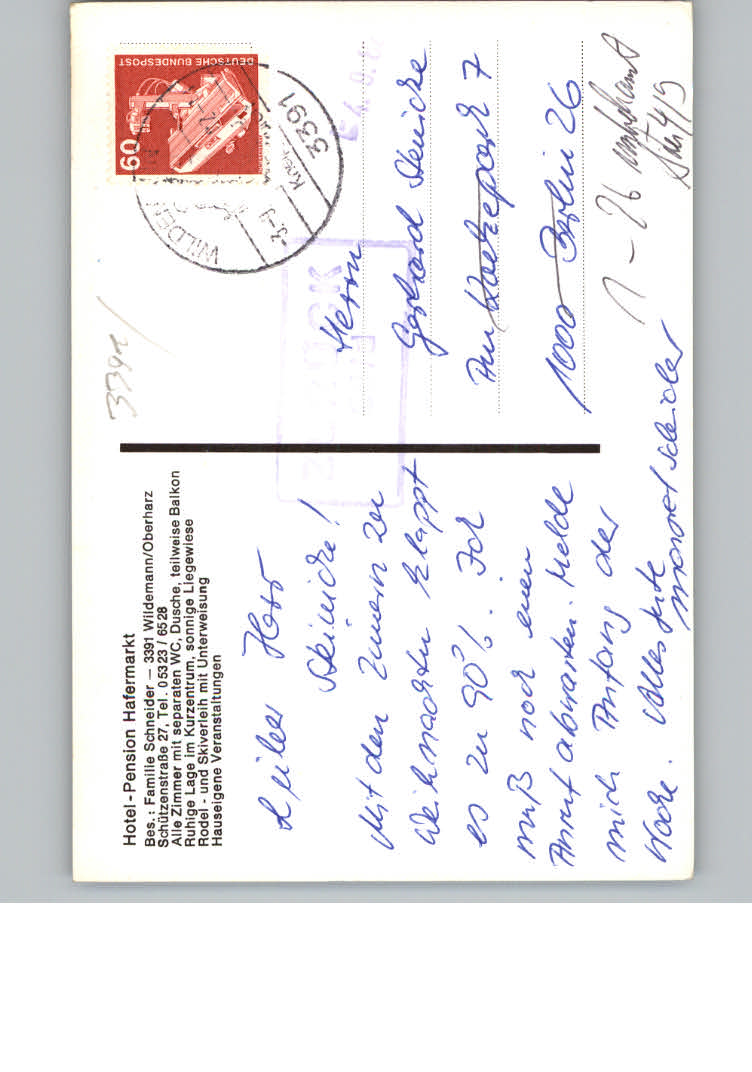 Hotel-Pension Hafermarkt
Bes.: Familie Schneider — 3391 Wildemann/Oberharz
Schützenstraße 27, Tel. 05323 / 6528
Alle Zimmer mit separaten WC, Dusche, teilweise Balkon
Ruhige Lage im Kurzentrum, sonnige Liegewiese
Rodel- und Skiverleih mit Unterweisung
Hauseigene Veranstaltungen
Lieber Herr
Steinicke!
Mit den Zimmern zu
Weihnachten klappt
es zu 90%. Ich
muß noch einen
Anruf abwarten. Melde
mich Anfang der
Woche. Alles Gute
Schneider
3391
DEUTSCHE BUNDESPOST
60
3391
ZURÜCK
Herrn
Gerhard Steinicke
7
1000 Berlin 26
1-26 unbekannt
4/9